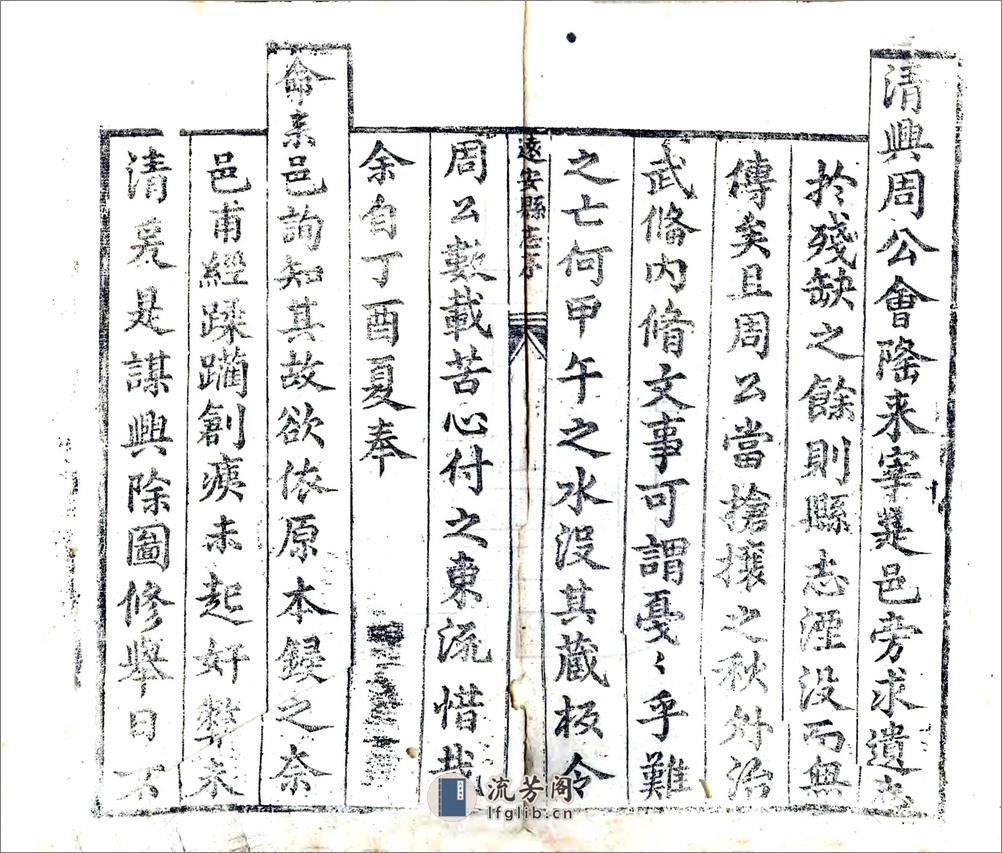 清興周公會隆来宰是邑旁求遺志
扵殘缺之餘則縣志湮没而無
傳矣且周公當搶攘之秋外治
武偹内脩文事可謂戞〻乎難
之亡何甲午之水没其蔵板令
遠安縣志序
周公數載苦心付之東流惜哉
余自丁酉夏奉
命来邑詢知其故欲依原本録之奈
邑甫經蹂躪創痍未起奸弊未
清是謀興除圖修舉日不
流芳阁
lfglib.cn